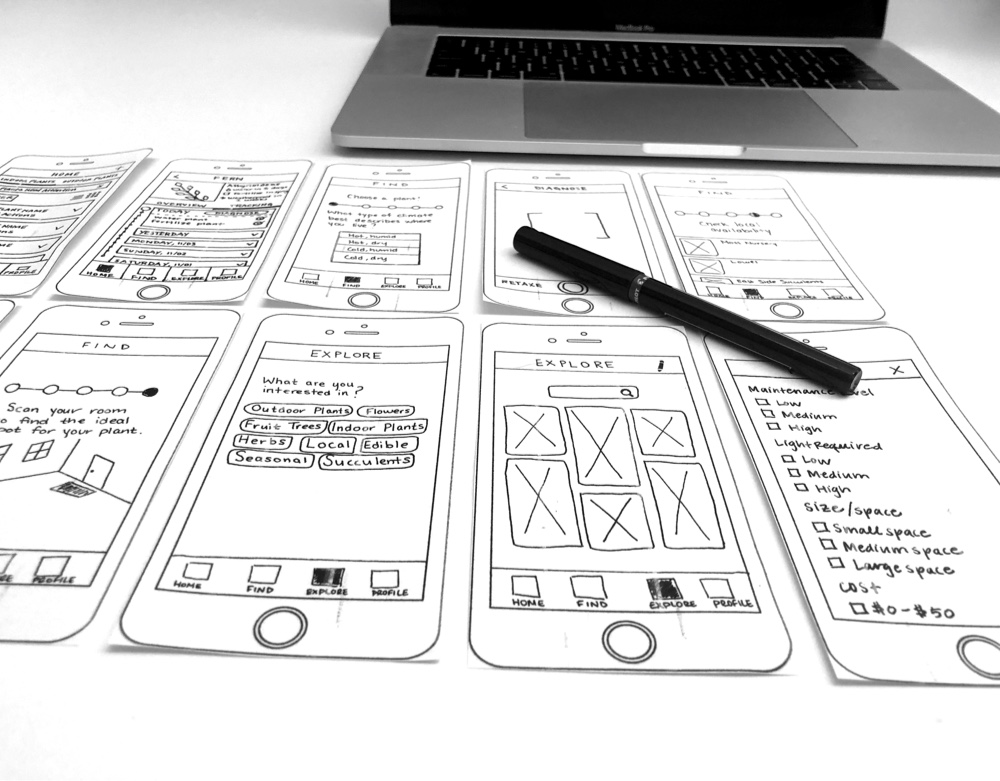 MacBook Pro
HOME
PLANT NAME
PROFILE
FERN
OVERVIEW TRACKING
TODAY
DIAGNOSE
Fertilize plant
YESTERDAY
MONDAY, 11/03
SUNDAY, 11/02
SATURDAY, 11/01
HOME FIND EXPLORE PROFILE
FIND
Choose a plant!
What type of climate
best describes where
you live?
Hot, humid
Hot, dry
Cold, humid
Cold, dry
HOME FIND EXPLORE PROFILE
DIAGNOSE
RETAKE
FIND
Check local
availability
Lowe's
HOME FIND EXPLORE PROFILE
FIND
Scan your room
to find the ideal
spot for your plant.
PROFILE
EXPLORE
What are you
interested in?
Outdoor Plants Flowers
Fruit Trees Indoor Plants
Herbs Local Edible
Seasonal Succulents
HOME FIND EXPLORE PROFILE
EXPLORE
HOME FIND EXPLORE PROFILE
X
Maintenance level
Low
Medium
High
Light Required
Low
Medium
High
Size/space
Small space
Medium space
Large space
Cost
$0-$50